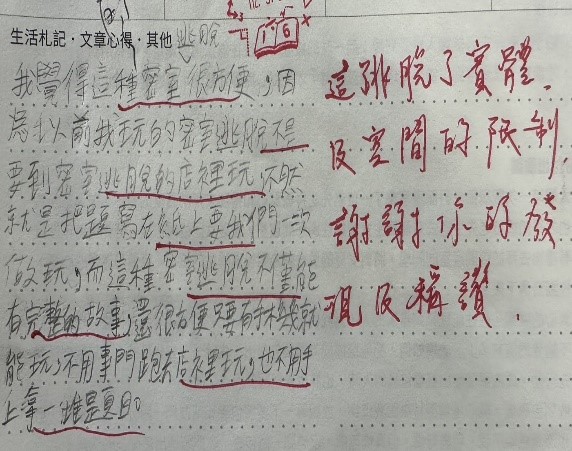 生活札記・文章心得・其他 逃脫
我覺得這種密室很方便，因
為以前我玩的密室逃脫不是
要到密室逃脫的店裡玩，不然
就是把題寫在紙上要我們一次
做玩，而這種密室逃脫不僅能
有完整的故事，還很方便只要有手機就
能玩，不用專門跑去店裡玩，也不用手
上拿一堆題目。
這跳脫了實體、
及空間的限制，
謝謝你的發
現及稱讚。